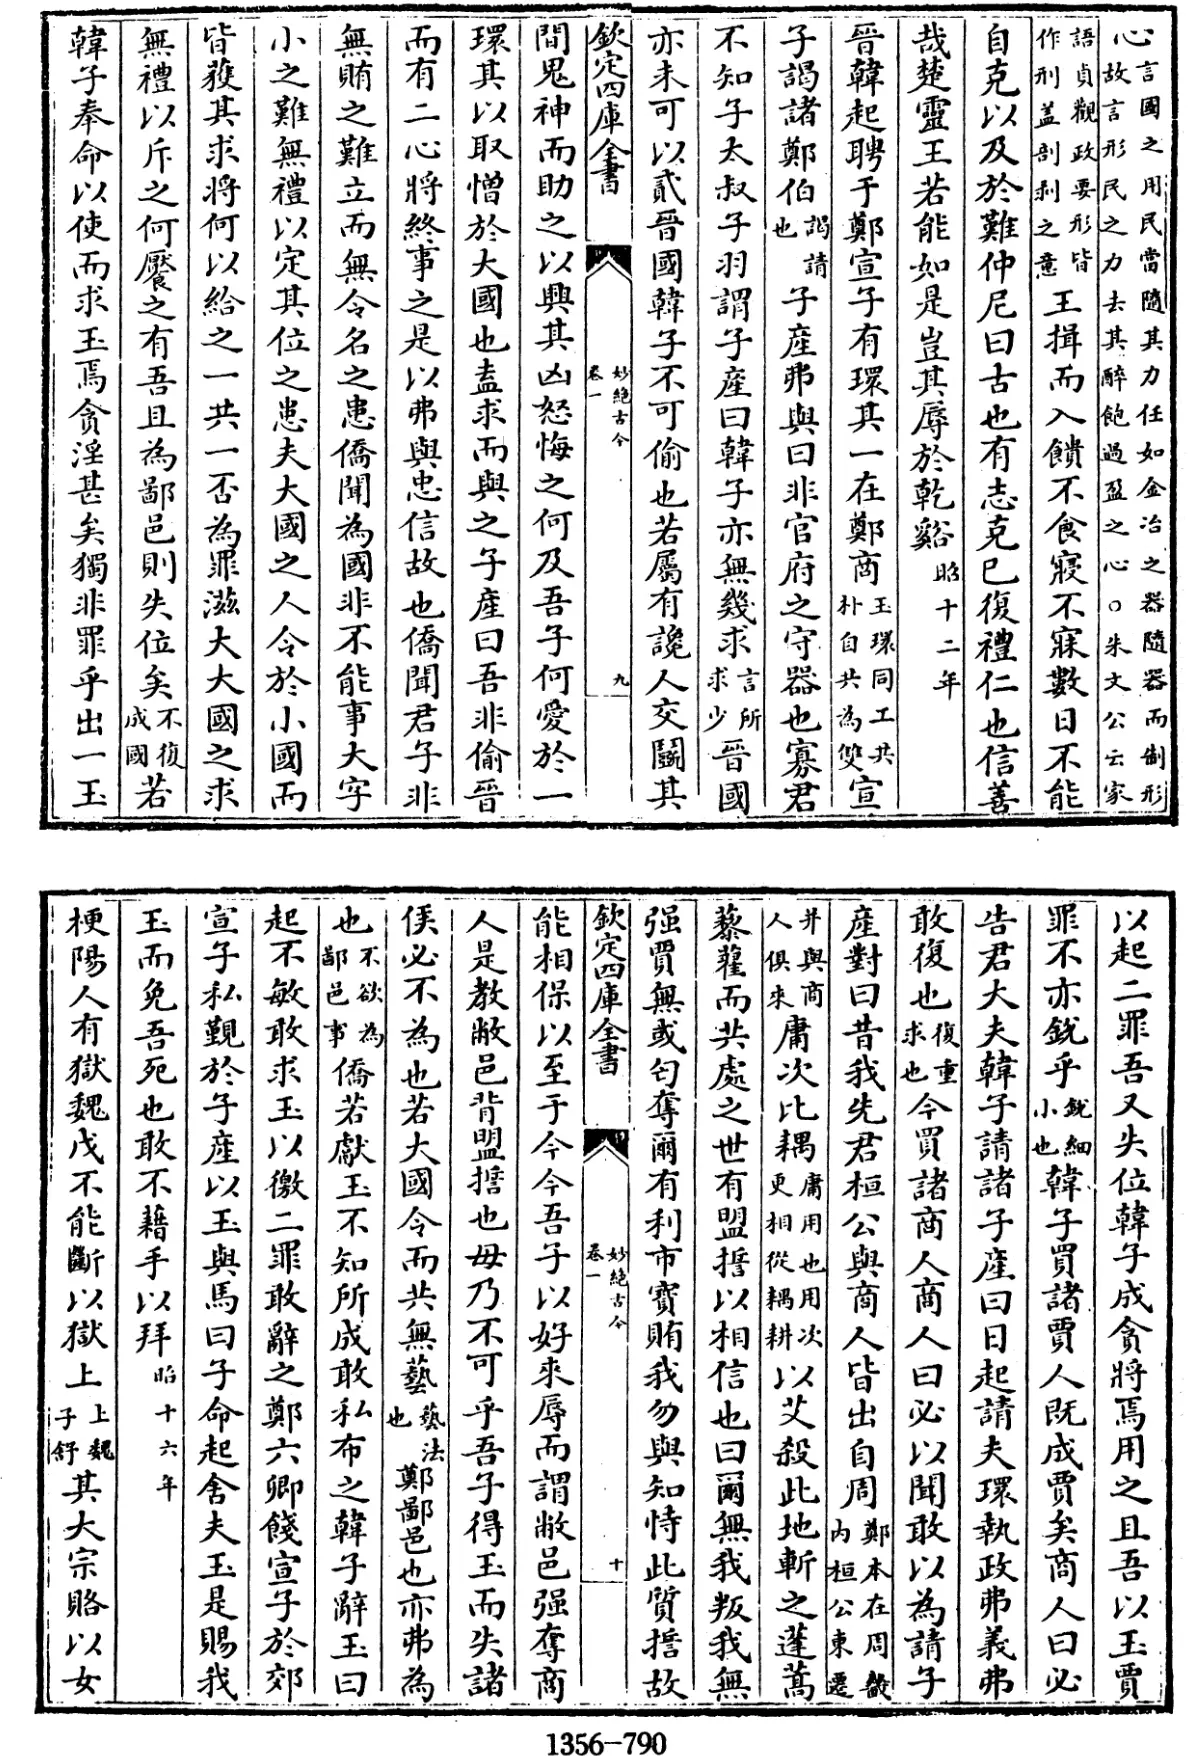 心言國之用民當隨其力任如金冶之器隨器而制形故言形民之力去其醉飽過盈之心○朱文公云家
語貞觀政要形皆作刑盖剖剥之意王揖而入饋不食寢不寐數日不能
自克以及於難仲尼曰古也有志克已復禮仁也信善
哉楚靈王若能如是豈其辱於乾谿昭十二年
晉韓起聘于鄭宣子有環其一在鄭商玉環同工共朴自共為雙宣
子謁諸鄭伯謁請也子産弗與曰非官府之守器也寡君
不知子太叔子羽謂子産曰韓子亦無幾求言所求少晉國
亦未可以貳晉國韓子不可偷也若屬有讒人交鬬其
欽定四庫全書
妙絶古今
卷一
九
間鬼神而助之以興其凶怒悔之何及吾子何愛於一
環其以取憎於大國也盍求而與之子産曰吾非偷晉
而有二心將終事之是以弗與忠信故也僑聞君子非
無賄之難立而無令名之患僑聞為國非不能事大字
小之難無禮以定其位之患夫大國之人令於小國而
皆獲其求將何以給之一共一否為罪滋大大國之求
無禮以斥之何饜之有吾且為鄙邑則失位矣不復成國若
韓子奉命以使而求玉焉貪淫甚矣獨非罪乎出一玉
以起二罪吾又失位韓子成貪將焉用之且吾以玉賈
罪不亦鋭乎鋭細小也韓子買諸賈人既成賈矣商人曰必
告君大夫韓子請諸子産曰日起請夫環執政弗義弗
敢復也復重求也今買諸商人商人曰必以聞敢以為請子
産對曰昔我先君桓公與商人皆出自周鄭本在周畿内桓公東遷
并與商人俱來庸次比耦庸用也用次更相從耦耕以艾殺此地斬之蓬蒿
藜藿而共處之世有盟誓以相信也曰爾無我叛我無
强賈無或匄奪爾有利市寳賄我勿與知恃此質誓故
欽定四庫全書
妙絶古今
卷一
十
能相保以至于今今吾子以好來辱而謂敝邑强奪商
人是教敝邑背盟誓也毋乃不可乎吾子得玉而失諸
侯必不為也若大國令而共無藝藝法也鄭鄙邑也亦弗為
也不欲為鄙邑事僑若獻玉不知所成敢私布之韓子辭玉曰
起不敏敢求玉以徼二罪敢辭之鄭六卿餞宣子於郊
宣子私覲於子産以玉與馬曰子命起舍夫玉是賜我
玉而免吾死也敢不藉手以拜昭十六年
梗陽人有獄魏戊不能斷以獄上上魏子舒其大宗賂以女
1356-790